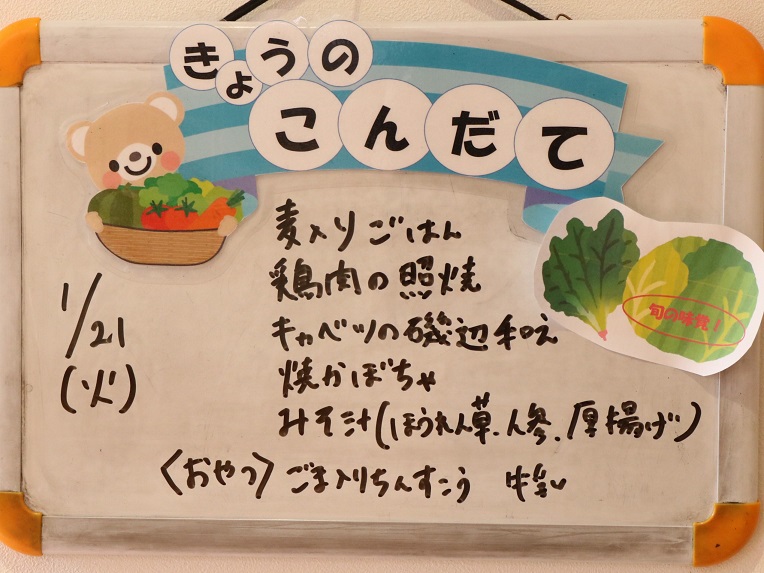 きょうの
こんだて
麦入りごはん
鶏肉の照焼
キャベツの磯辺和え
焼かぼちゃ
みそ汁(ほうれん草.人参.厚揚げ)
〈おやつ〉ごま入りちんすこう 牛乳
1/21
(火)
旬の味覚!